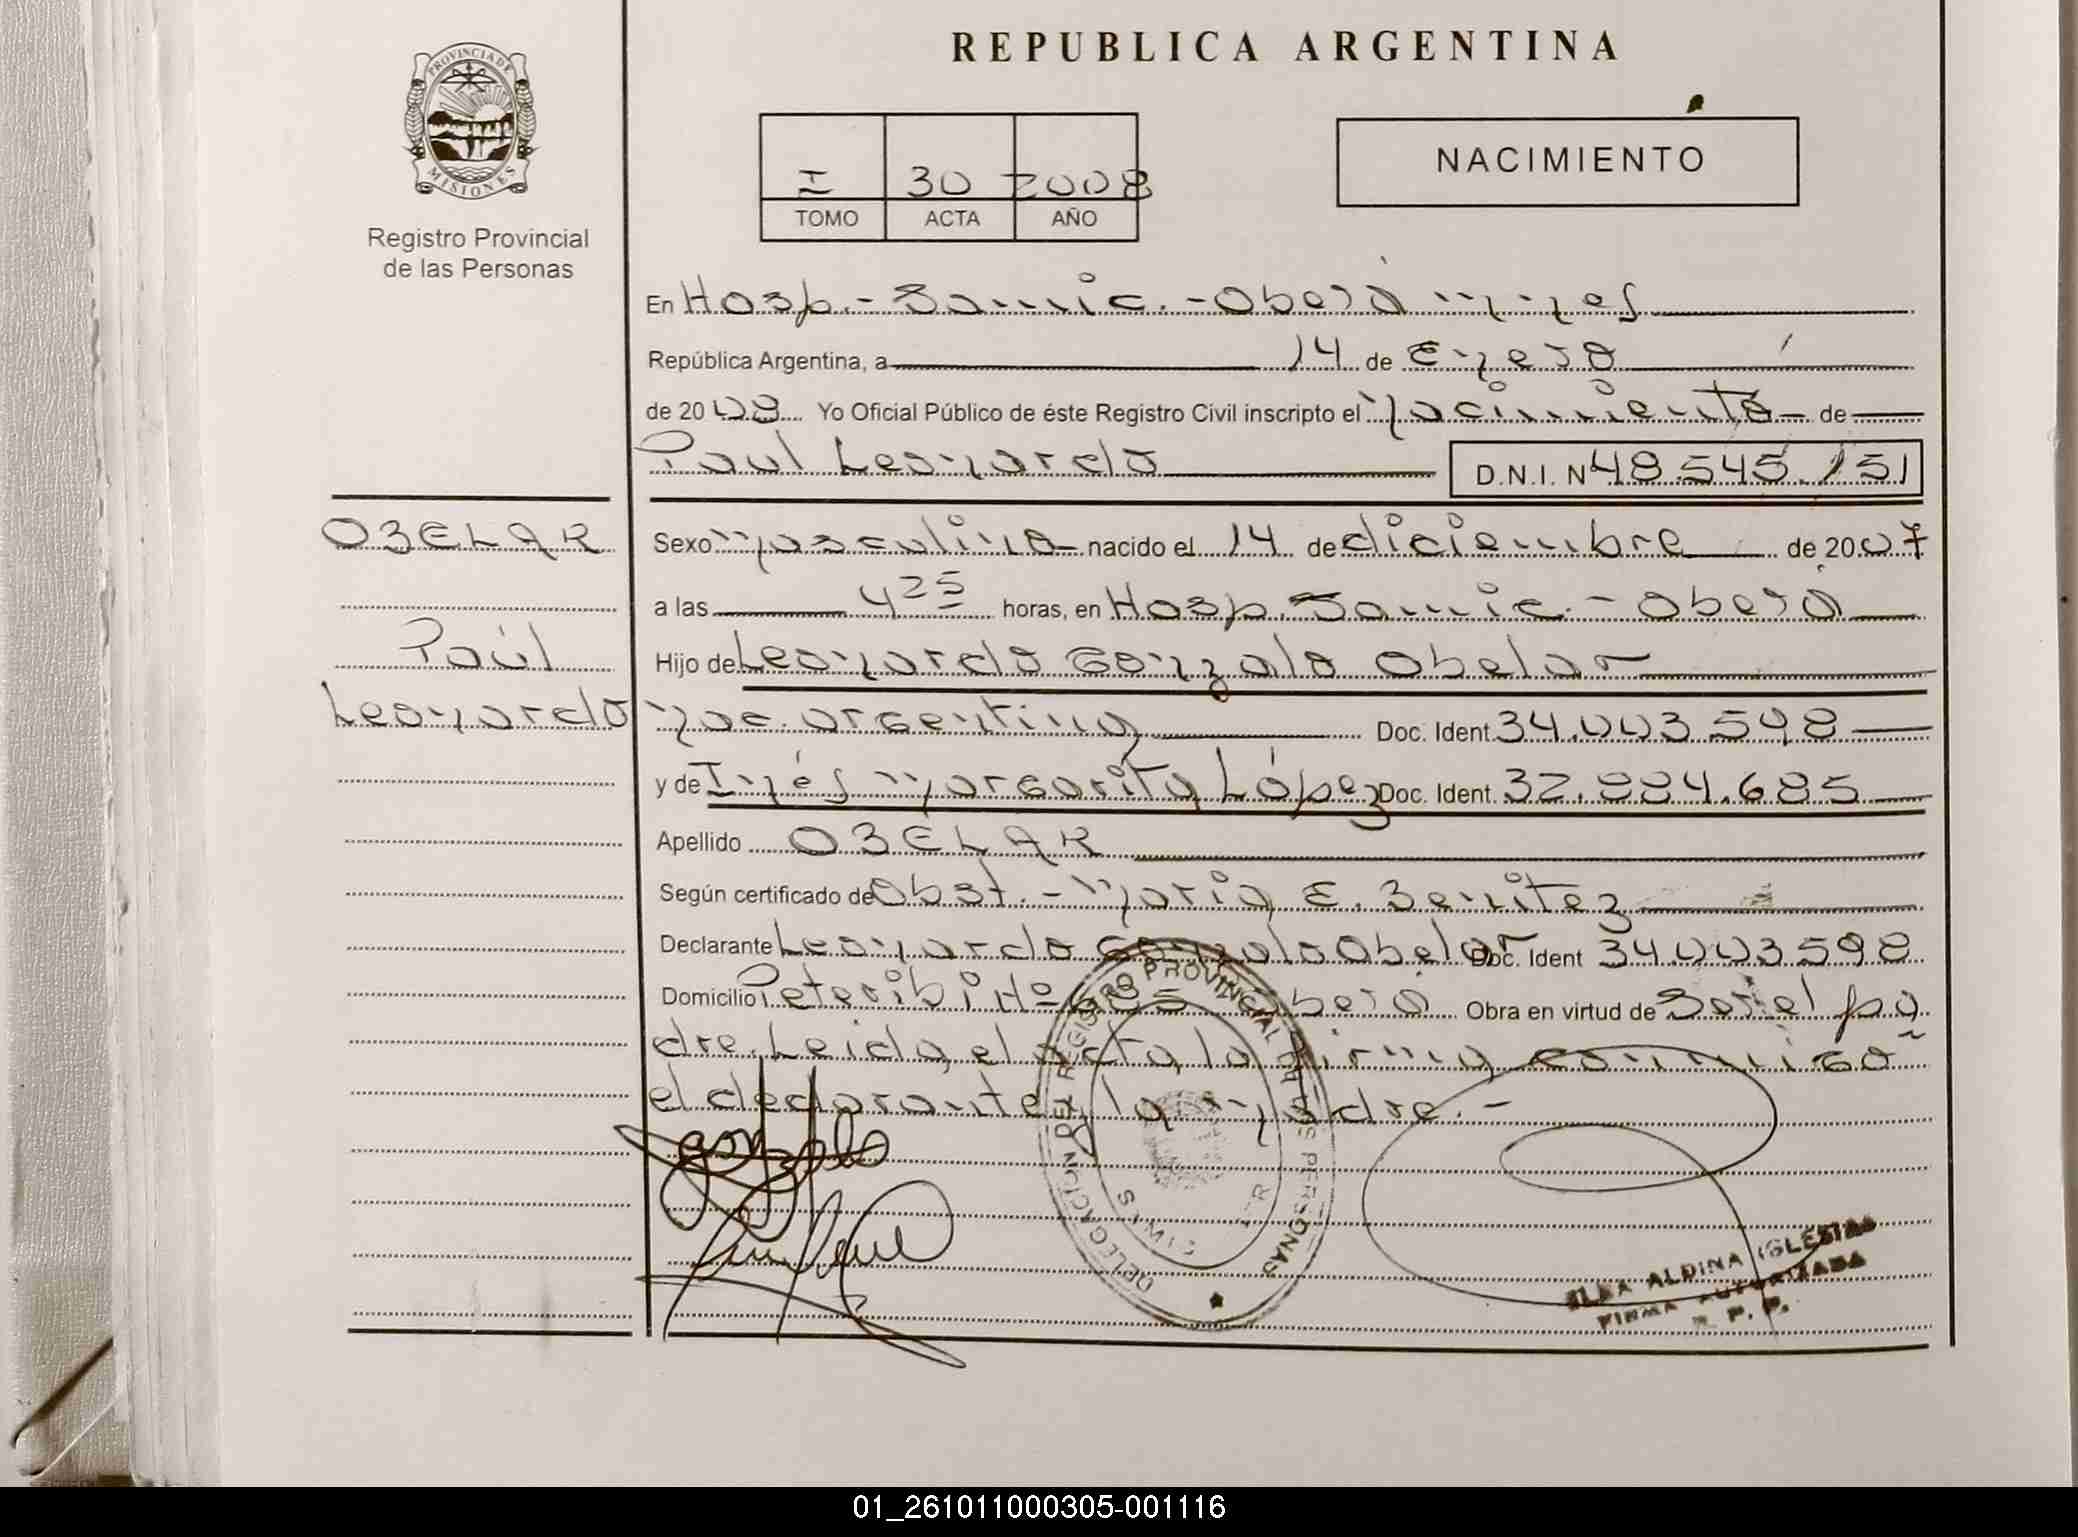 REPUBLICA ARGENTINA
PROVINCIA DE MISIONES
Registro Provincial
de las Personas
I 30 2008
TOMO ACTA AÑO
NACIMIENTO
En Hosp.- Samic.- Oberá mnes
República Argentina, a 14 de Enero
de 2008 Yo Oficial Público de éste Registro Civil inscripto el nacimiento de
Paul Leonardo D.N.I. Nº 48.545.151
OBELAR
Paúl
Leonardo
Sexo masculino nacido el 14 de diciembre de 2007
a las 4 25 horas, en Hosp. Samic.- Oberá
Hijo de Leonardo Gonzalo Obelar
nac. argentina Doc. Ident. 34.003.598
y de Inés Margarita López Doc. Ident. 32.884.685
Apellido OBELAR
Según certificado de Obst.- Maria E. Benitez
Declarante Leonardo Gonzalo Obelar Doc. Ident 34.003.598
Domicilio Peteribi Nº Oberá Obra en virtud de Ser el pa
dre. Leida el acta, la firma conmigo
el declarante y la madre.-
DELEGACION DEL REGISTRO PROVINCIAL DE LAS PERSONAS
ELBA ALDINA IGLESIAS
FIRMA AUTORIZADA
R. P. P.
01_261011000305-001116